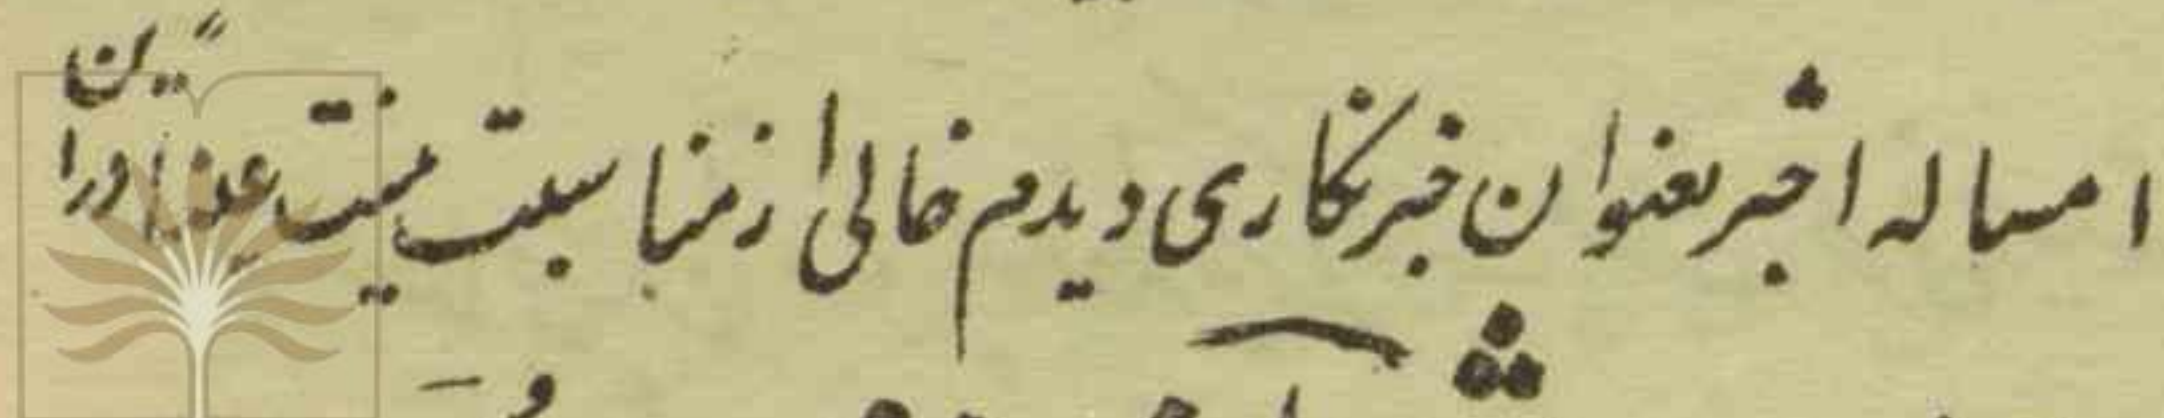 امساله اخیر بعنوان خبرنگاری دیدم خالی از مناسبت نیست عین اوراً